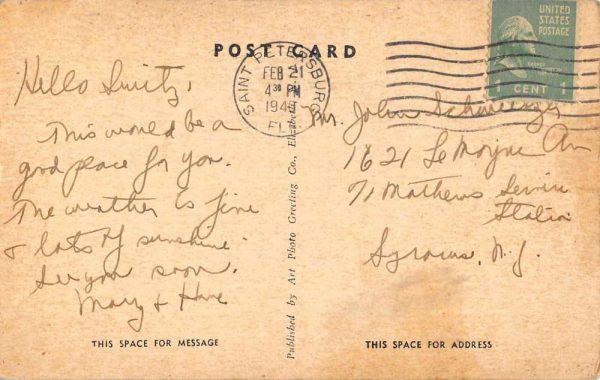 POST CARD
UNITED
STATES
POSTAGE
1 CENT 1
SAINT PETERSBURG
FEB 21
4 30 PM
FLA
Hello
This would be a
good place for you.
The weather is fine
& lots of sunshine.
See you soon.
Mary &
Published by Art Photo Greeting Co., Elizabeth,
Mr. John
1621 LeMoyne Av
% Mathews Service
Station
Syracuse, N.Y.
THIS SPACE FOR MESSAGE
THIS SPACE FOR ADDRESS